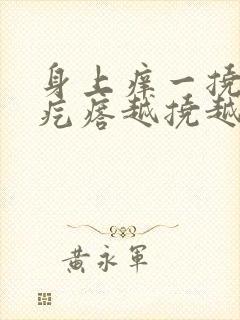 身上痒一挠
疙瘩越挠越
黄永军